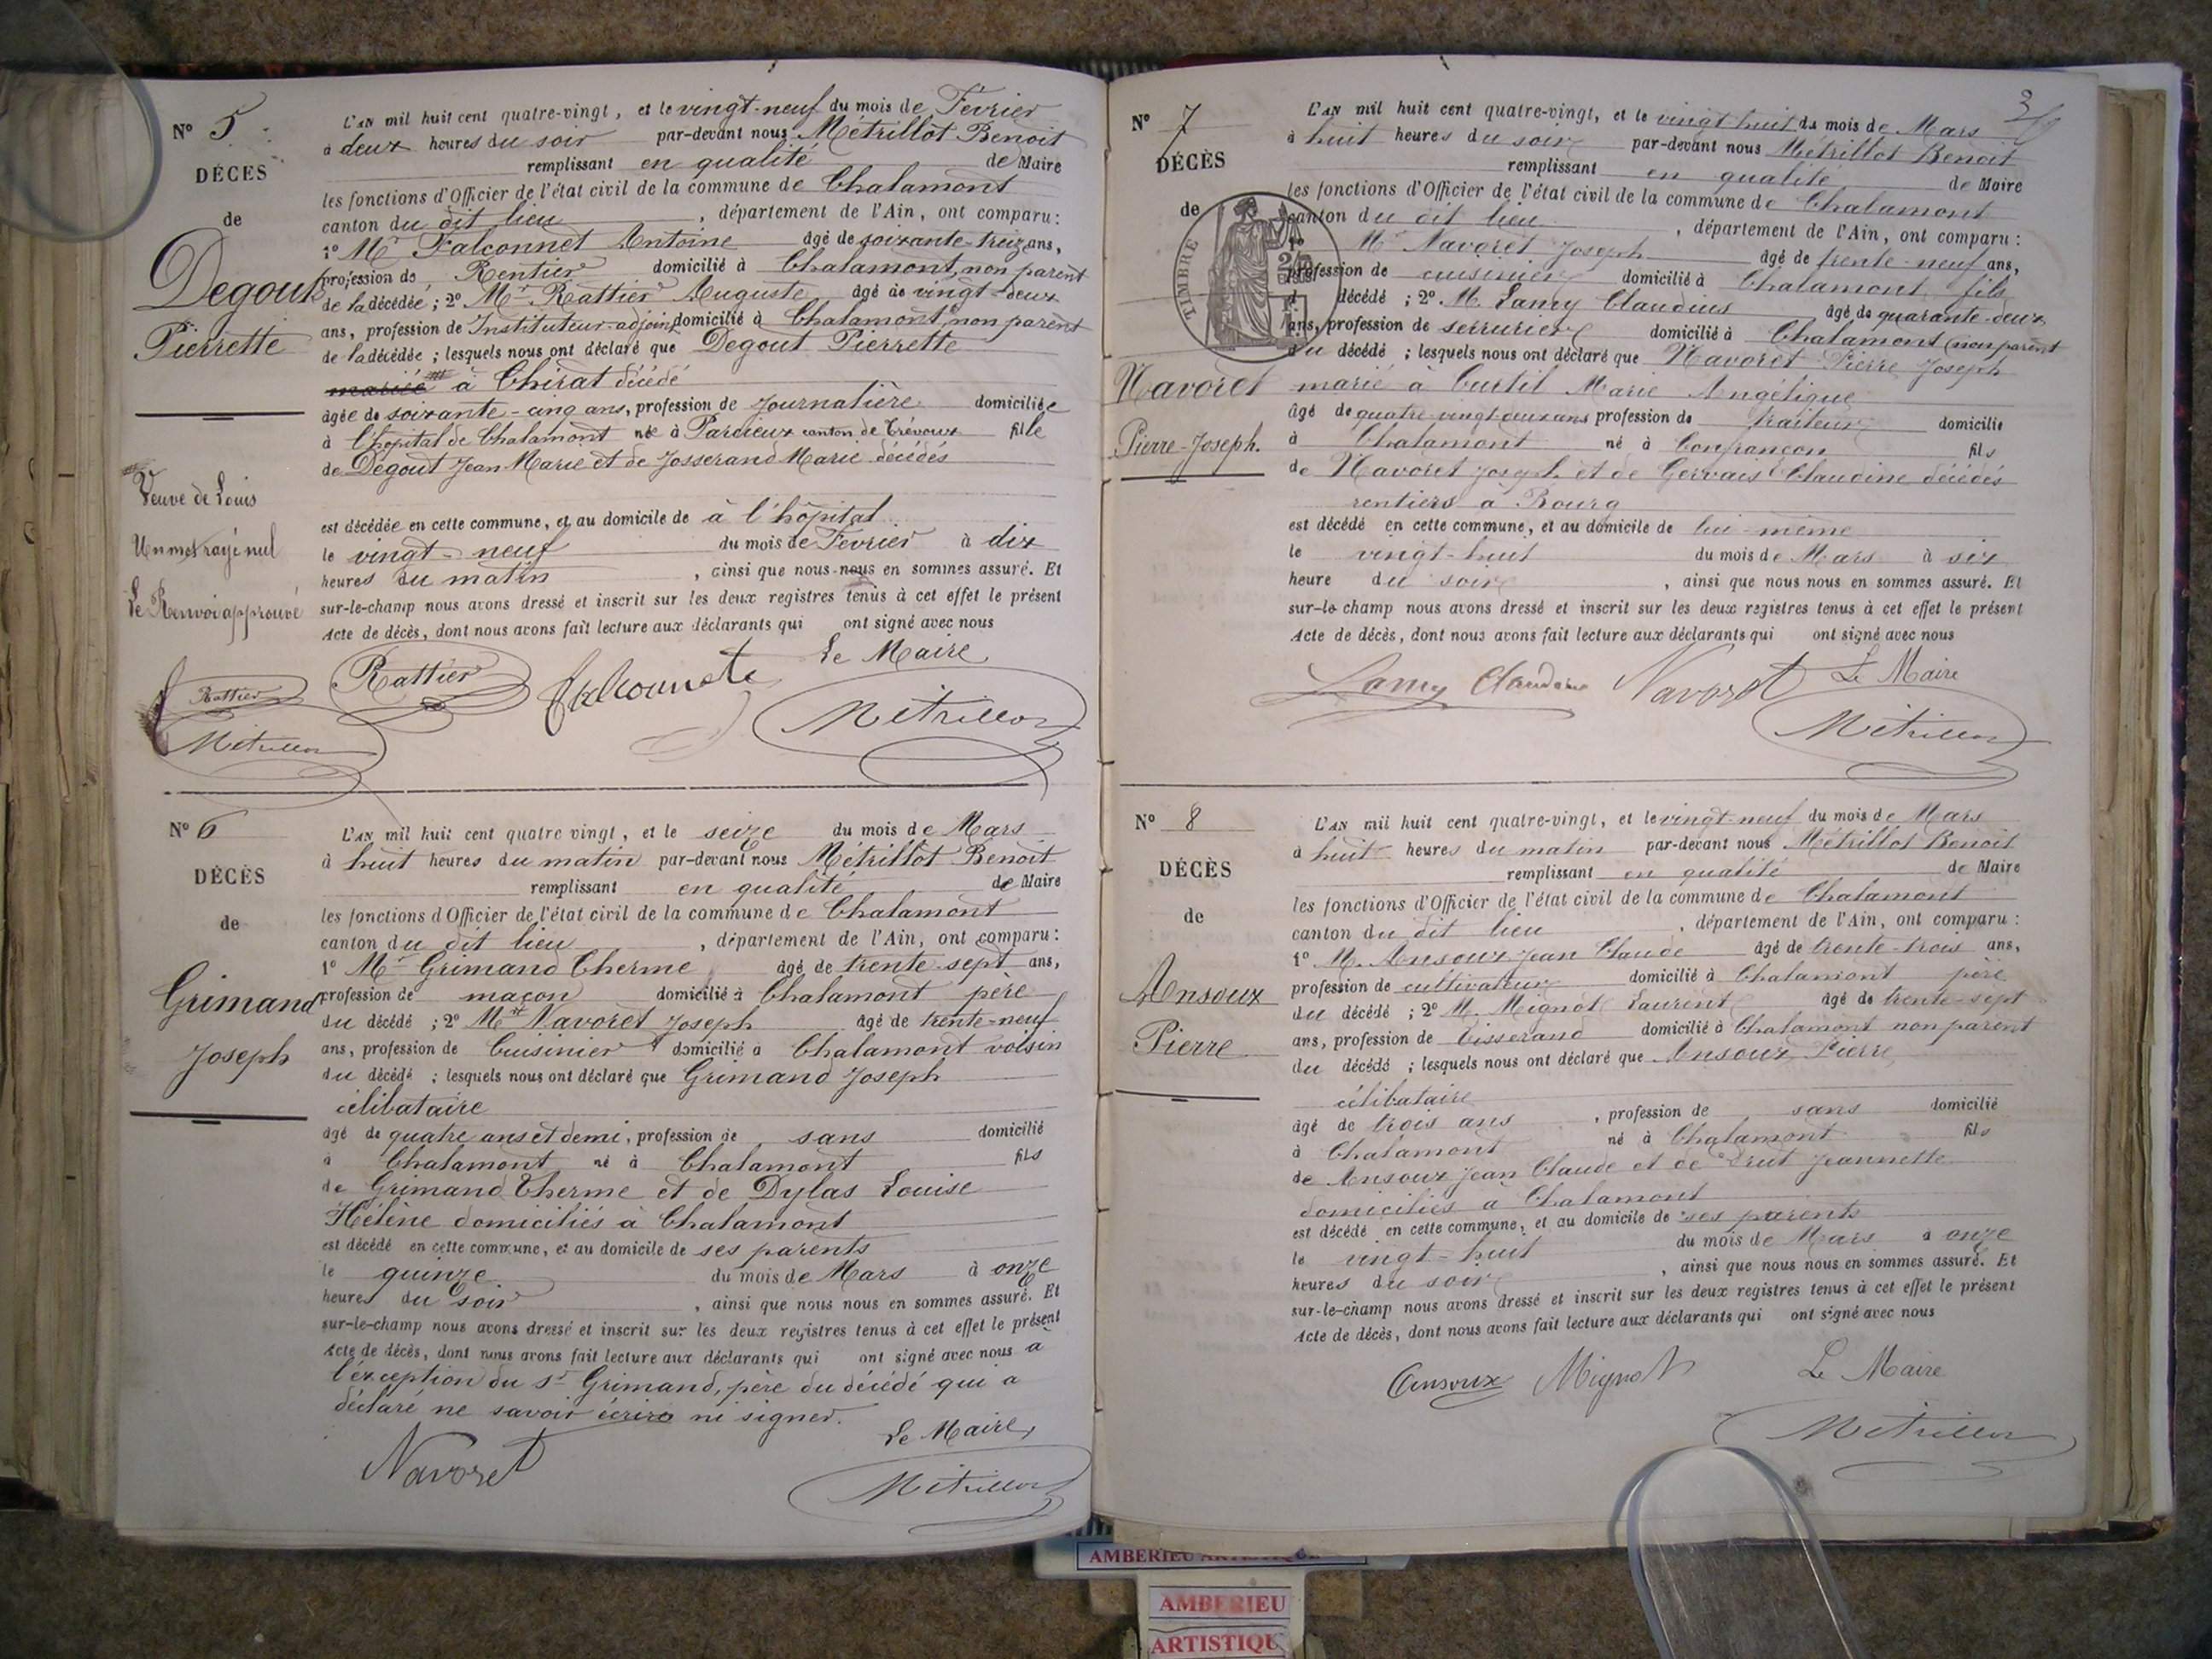 Nº 5
DÉCÈS
de
Degout
Pierrette
Veuve de Louis
Un mot rayé nul
Le Renvoi approuvé
Rattier
Métrillot
L'AN mil huit cent quatre-vingt, et le vingt-neuf du mois de Février
à deux heures du soir par-devant nous Métrillot Benoit
remplissant en qualité de Maire
les fonctions d'Officier de l'état civil de la commune de Chalamont
canton du dit lieu, département de l'Ain, ont comparu:
1º Mr Falconnet Antoine âgé de soixante-treize ans,
profession de Rentier domicilié à Chalamont, non parent
de la décédée; 2º Mr Rattier Auguste âgé de vingt-deux
ans, profession de Instituteur-adjoint domicilié à Chalamont non parent
de la décédée; lesquels nous ont déclaré que Degout Pierrette
mariée # à Chirat décédé
âgée de soixante-cinq ans, profession de Journalière domiciliée
à l'hôpital de Chalamont née à Parcieux canton de Trévoux fille
de Degout Jean Marie et de Josserand Marie décédés
est décédée en cette commune, et au domicile de à l'hôpital
le vingt-neuf du mois de Février à dix
heures du matin, ainsi que nous-nous en sommes assuré. Et
sur-le-champ nous avons dressé et inscrit sur les deux registres tenus à cet effet le présent
Acte de décès, dont nous avons fait lecture aux déclarants qui ont signé avec nous
Le Maire
Rattier Falconnet
Métrillot
Nº 6
DÉCÈS
de
Grimand
Joseph
L'AN mil huit cent quatre vingt, et le seize du mois de Mars
à huit heures du matin par-devant nous Métrillot Benoit
remplissant en qualité de Maire
les fonctions d'Officier de l'état civil de la commune de Chalamont
canton du dit lieu, département de l'Ain, ont comparu:
1º Mr Grimand Therme âgé de trente-sept ans,
profession de maçon domicilié à Chalamont père
du décédé; 2º Mr Navoret Joseph âgé de trente-neuf
ans, profession de Cuisinier domicilié à Chalamont voisin
du décédé; lesquels nous ont déclaré que Grimand Joseph
célibataire
âgé de quatre ans et demi, profession de sans domicilié
à Chalamont né à Chalamont fils
de Grimand Therme et de Dylas Louise
Hélène domiciliés à Chalamont
est décédé en cette commune, et au domicile de ses parents
le quinze du mois de Mars à onze
heures du soir, ainsi que nous nous en sommes assuré. Et
sur-le-champ nous avons dressé et inscrit sur les deux registres tenus à cet effet le présent
Acte de décès, dont nous avons fait lecture aux déclarants qui ont signé avec nous à
l'exception du sr Grimand, père du décédé qui a
déclaré ne savoir écrire ni signer.
Le Maire
Navoret
Métrillot
3
Nº 7
DÉCÈS
de
TIMBRE
Navoret
Pierre-Joseph.
L'AN mil huit cent quatre-vingt, et le vingt huit du mois de Mars
à huit heures du soir par-devant nous Métrillot Benoit
remplissant en qualité de Maire
les fonctions d'Officier de l'état civil de la commune de Chalamont
canton du dit lieu, département de l'Ain, ont comparu:
1º Mr Navoret Joseph âgé de trente-neuf ans,
profession de cuisinier domicilié à Chalamont fils
d décédé; 2º. M. Lamy Claudius âgé de quarante-deux
ans, profession de serrurier domicilié à Chalamont (non parent
du décédé; lesquels nous ont déclaré que Navoret Pierre Joseph
marié à Curtil Marie Angélique
âgé de quatre-vingt-deux ans profession de traiteur domicilié
à Chalamont né à Confrançon fils
de Navoret Joseph et de Gervais Claudine décédés
rentiers à Bourg
est décédé en cette commune, et au domicile de lui-même
le vingt-huit du mois de Mars à six
heure du soir, ainsi que nous nous en sommes assuré. Et
sur-le champ nous avons dressé et inscrit sur les deux registres tenus à cet effet le présent
Acte de décès, dont nous avons fait lecture aux déclarants qui ont signé avec nous
Lamy Claudius Navoret Le Maire
Métrillot
Nº 8
DÉCÈS
de
Ansoux
Pierre
L'AN mil huit cent quatre-vingt, et le vingt-neuf du mois de Mars
à huit heures du matin par-devant nous Métrillot Benoit
remplissant en qualité de Maire
les fonctions d'Officier de l'état civil de la commune de Chalamont
canton du dit lieu, département de l'Ain, ont comparu:
1º M. Ansoux Jean Claude âgé de trente-trois ans,
profession de cultivateur domicilié à Chalamont père
du décédé; 2º M. Mignot Laurent âgé de trente-sept
ans, profession de tisserand domicilié à Chalamont non parent
du décédé; lesquels nous ont déclaré que Ansoux Pierre
célibataire
âgé de trois ans, profession de sans domicilié
à Chalamont né à Chalamont fils
de Ansoux Jean Claude et de Drut Jeannette
domiciliés à Chalamont
est décédé en cette commune, et au domicile de ses parents
le vingt-huit du mois de Mars à onze
heures du soir, ainsi que nous nous en sommes assuré. Et
sur-le-champ nous avons dressé et inscrit sur les deux registres tenus à cet effet le présent
Acte de décès, dont nous avons fait lecture aux déclarants qui ont signé avec nous
Ansoux Mignot Le Maire
Métrillot
AMBERIEU ARTISTIQUE
AMBERIEU
ARTISTIQU